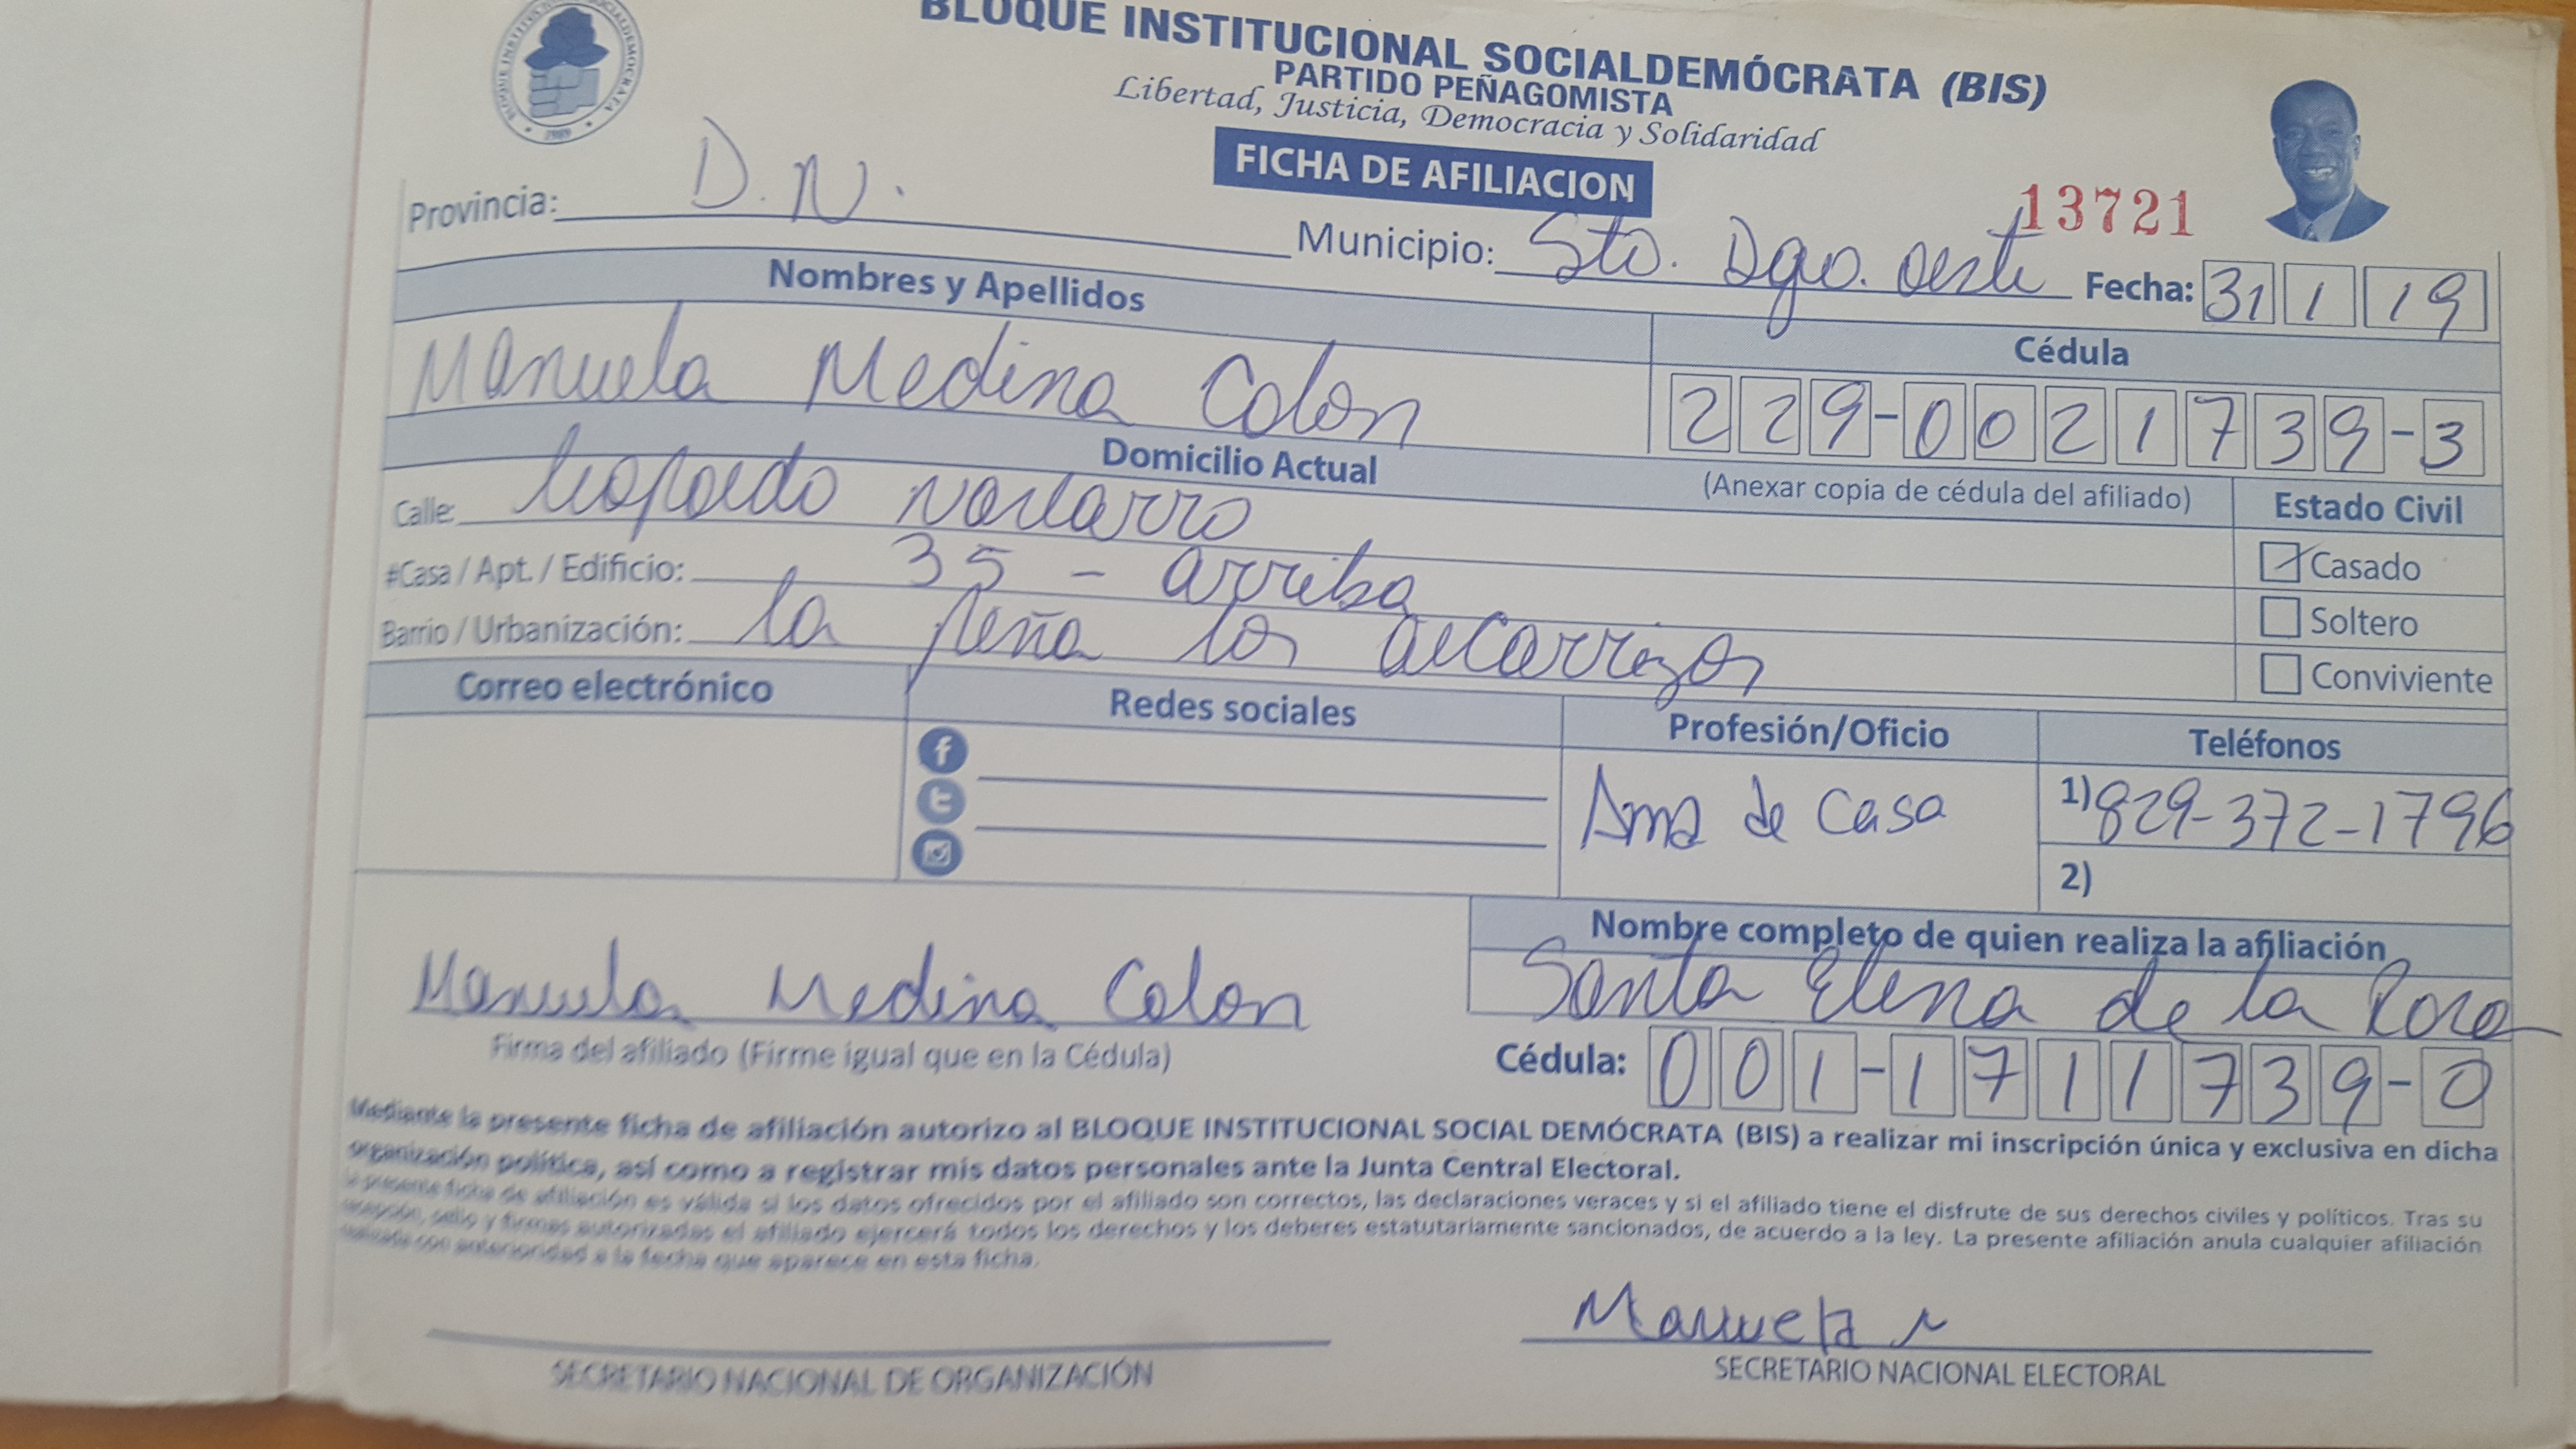 BLOQUE INSTITUCIONAL SOCIALDEMÓCRATA (BIS)
PARTIDO PEÑAGOMISTA
Libertad, Justicia, Democracia y Solidaridad
FICHA DE AFILIACION
13721
Provincia: D.N.
Municipio: Sto. Dgo. oeste
Fecha: 31 1 19
Nombres y Apellidos
Cédula
Manuela Medina Colon
229-0021739-3
Domicilio Actual
(Anexar copia de cédula del afiliado)
Estado Civil
Calle: leopoldo navarro
#Casa / Apt. / Edificio: 35 - arriba
Casado
Barrio / Urbanización: la peña los alcarrizos
Soltero
Conviviente
Correo electrónico
Redes sociales
Profesión/Oficio
Teléfonos
Ama de Casa
1) 829-372-1796
2)
Nombre completo de quien realiza la afiliación
Santa Elena de la Rosa
Manuela Medina Colon
Firma del afiliado (Firme igual que en la Cédula)
Cédula: 001-1711739-0
Mediante la presente ficha de afiliación autorizo al BLOQUE INSTITUCIONAL SOCIAL DEMÓCRATA (BIS) a realizar mi inscripción única y exclusiva en dicha
organización política, así como a registrar mis datos personales ante la Junta Central Electoral.
la presente ficha de afiliación es válida si los datos ofrecidos por el afiliado son correctos, las declaraciones veraces y si el afiliado tiene el disfrute de sus derechos civiles y políticos. Tras su
sello y firmas autorizadas el afiliado ejercerá todos los derechos y los deberes estatutariamente sancionados, de acuerdo a la ley. La presente afiliación anula cualquier afiliación
realizada con anterioridad a la fecha que aparece en esta ficha.
Manuela M
SECRETARIO NACIONAL DE ORGANIZACIÓN
SECRETARIO NACIONAL ELECTORAL